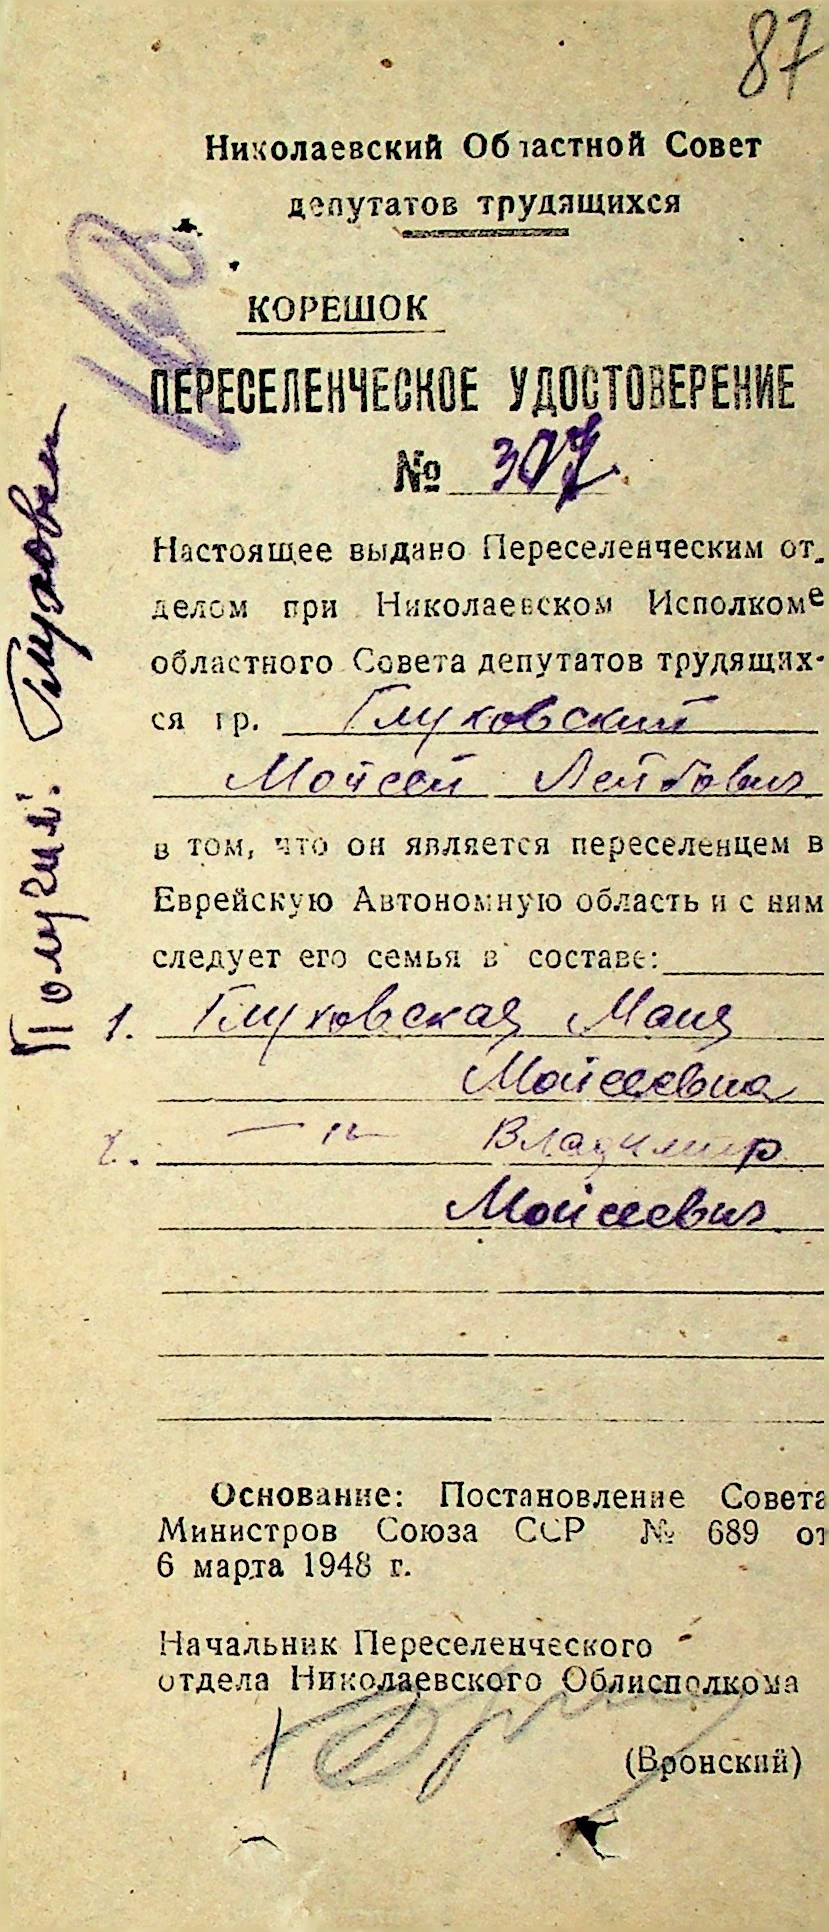 87
Николаевский Областной Совет
депутатов трудящихся
КОРЕШОК
ПЕРЕСЕЛЕНЧЕСКОЕ УДОСТОВЕРЕНИЕ
№ 307
Настоящее выдано Переселенческим от-
делом при Николаевском Исполкоме
областного Совета депутатов трудящих-
ся гр. Глуховский
Мойсей Лейбович
в том, что он является переселенцем в
Еврейскую Автономную область и с ним
следует его семья в составе:
1. Глуховская Маня
Мойсеевна
2. —"— Владимир
Мойсеевич
Основание: Постановление Совета
Министров Союза ССР № 689 от
6 марта 1948 г.
Начальник Переселенческого
отдела Николаевского Облисполкома
(Вронский)
Получил: